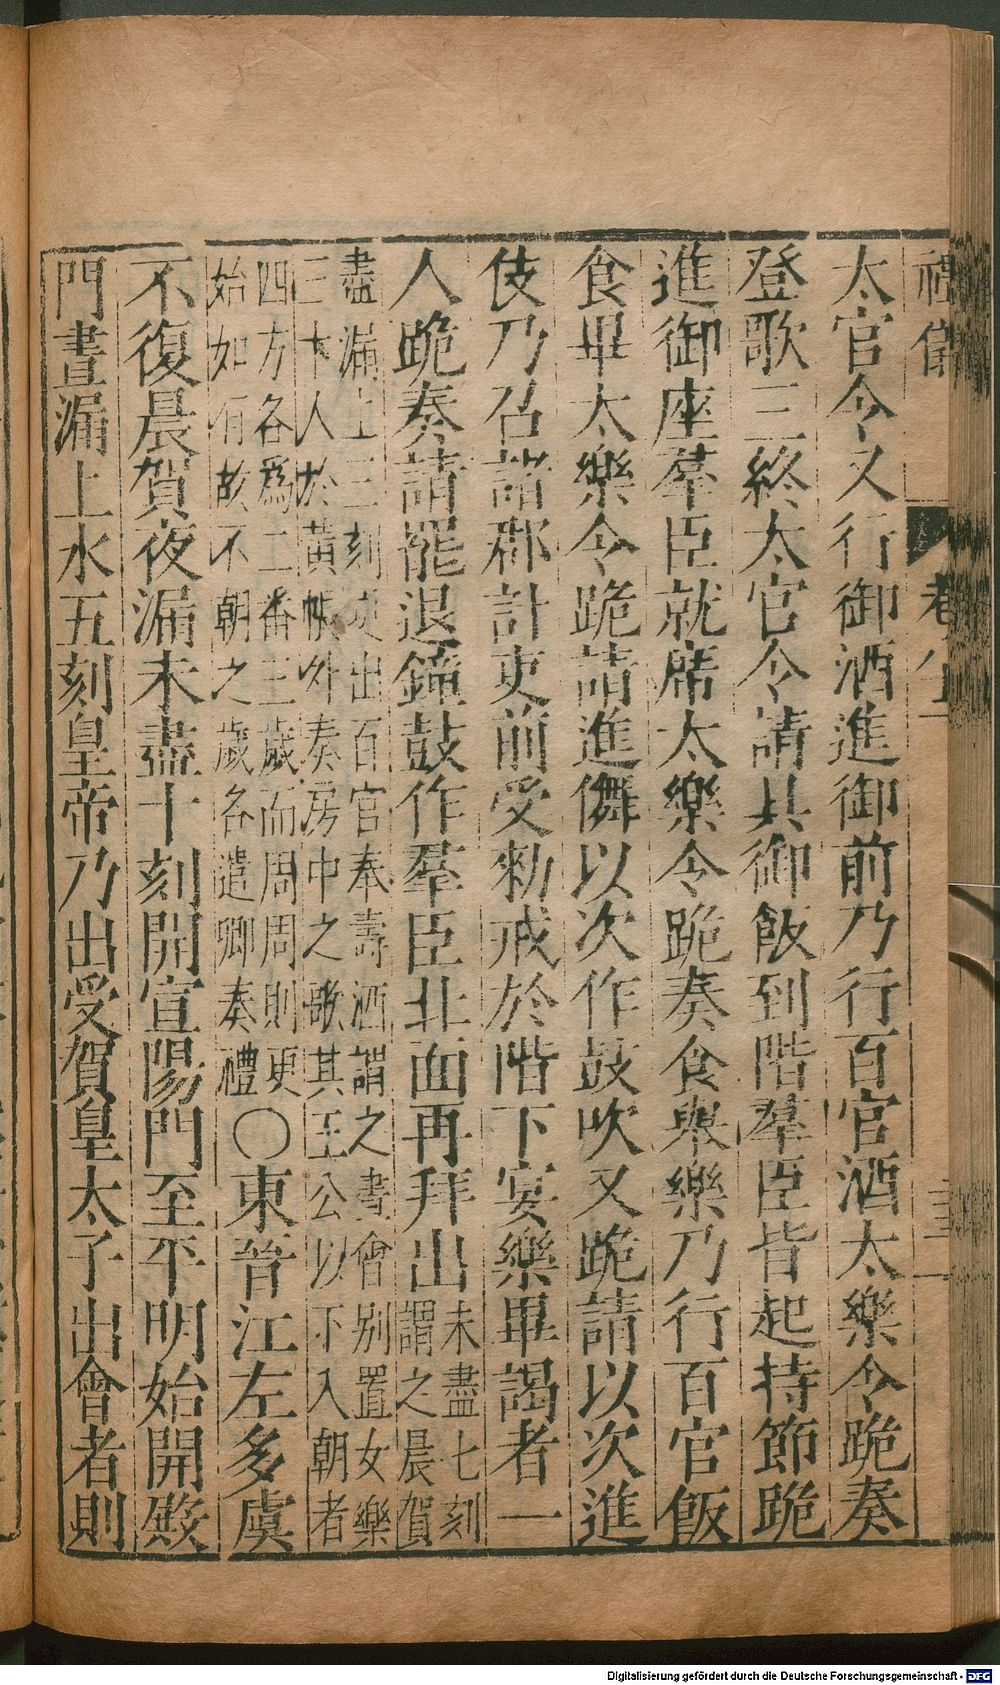 禮儀 卷 三
太官令又行御酒進御前乃行百官酒太樂令跪奏
登歌三終太官令請具御飯到階羣臣皆起持節跪
進御座羣臣就席太樂令跪奏食舉樂乃行百官飯
食畢太樂令跪請進儛以次作鼓吹又跪請以次進
伎乃召諸郡計吏前受勑戒於階下宴樂畢謁者一
人跪奏請罷退鐘鼓作羣臣北面再拜出
未盡七刻
謂之晨賀
盡漏上三刻更出百官奉壽酒謂之晝會別置女樂
三十人於黃帳外奏房中之歌其王公以下入朝者
四方各爲二番三歲而周周則更
始如有故不朝之歲各遣卿奏禮
○東晉江左多虞
不復晨賀夜漏未盡十刻開宣陽門至平明始開殿
門晝漏上水五刻皇帝乃出受賀皇太子出會者則
Digitalisierung gefördert durch die Deutsche Forschungsgemeinschaft - DFG